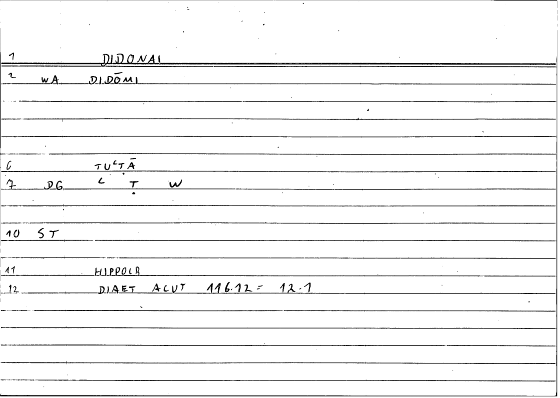 1 DIDONAI
2 WA DIDŌMI
6 TUʿṬĀ
7 DG ʿ Ṭ W
10 ST
11 HIPPOCR
12 DIAET ACUT 116.12 = 12.1